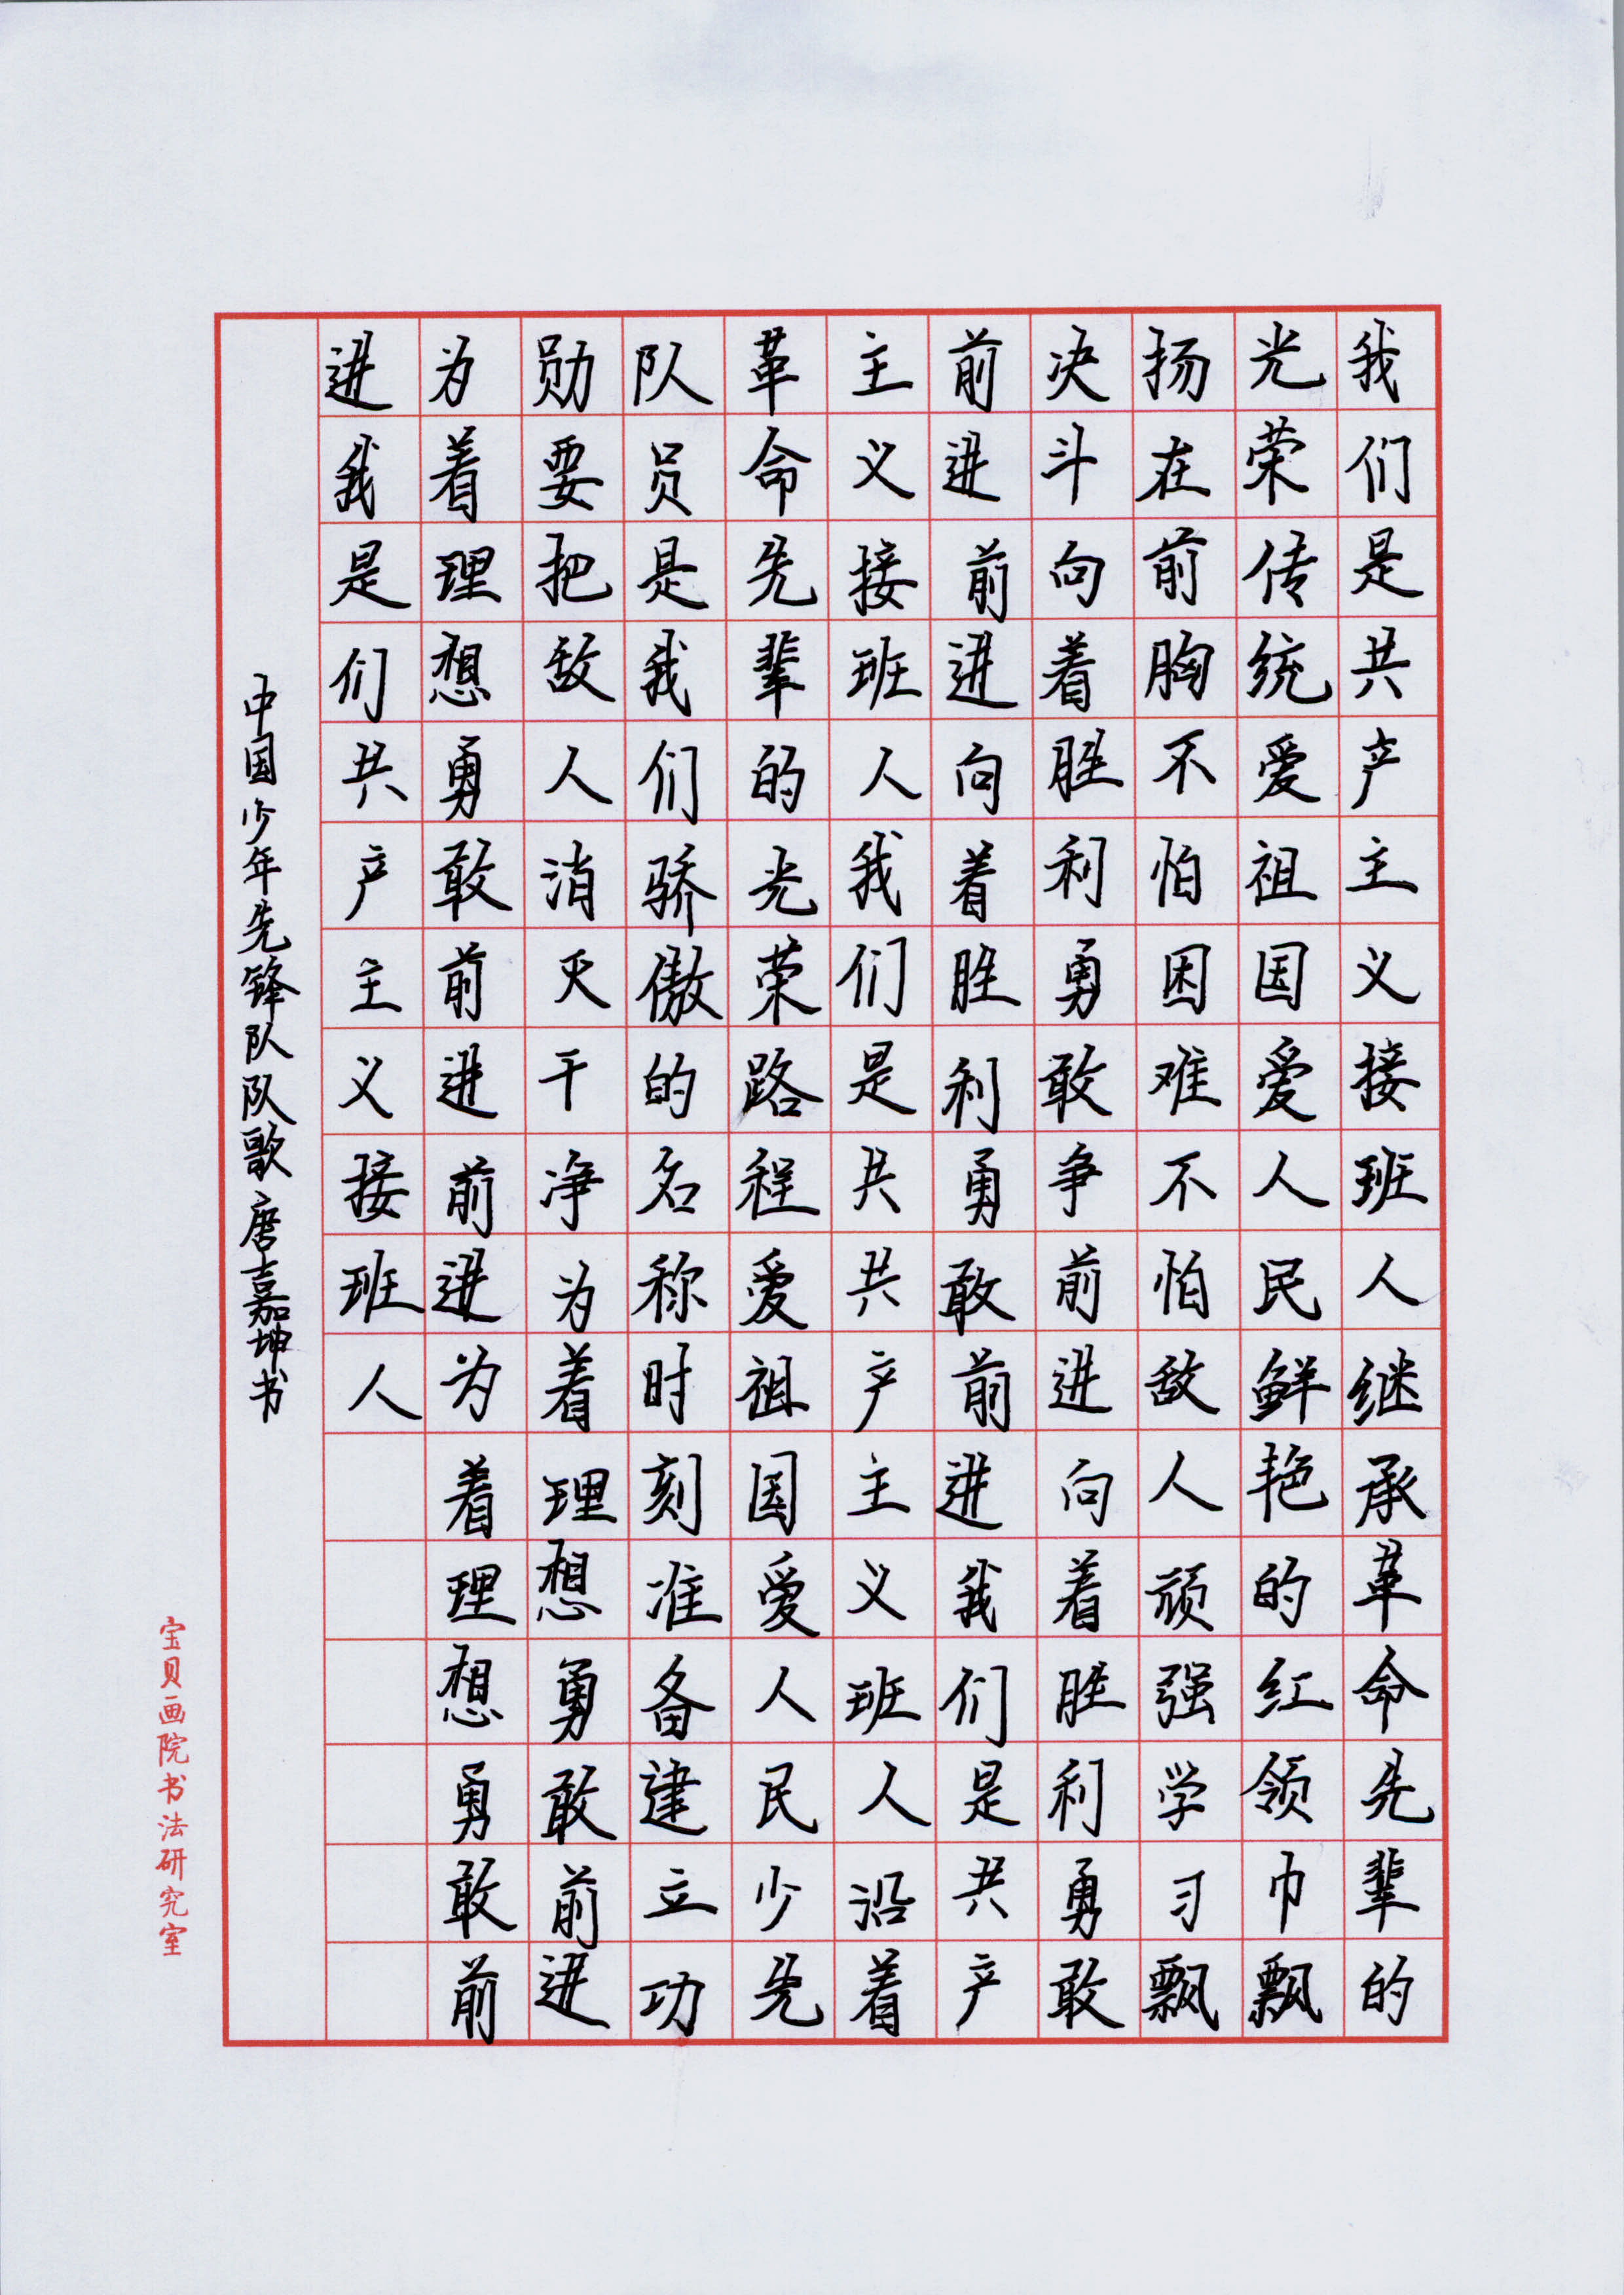 我们是共产主义接班人继承革命先辈的
光荣传统爱祖国爱人民鲜艳的红领巾飘
扬在前胸不怕困难不怕敌人顽强学习飘
决斗向着胜利勇敢争前进向着胜利勇敢
前进前进向着胜利勇敢前进我们是共产
主义接班人我们是共共产主义班人沿着
革命先辈的光荣路程爱祖国爱人民少先
队员是我们骄傲的名称时刻准备建立功
勋要把敌人消灭干净为着理想勇敢前进
为着理想勇敢前进前进为着理想勇敢前
进我是们共产主义接班人
中国少年先锋队队歌唐嘉坤书
宝贝画院书法研究室